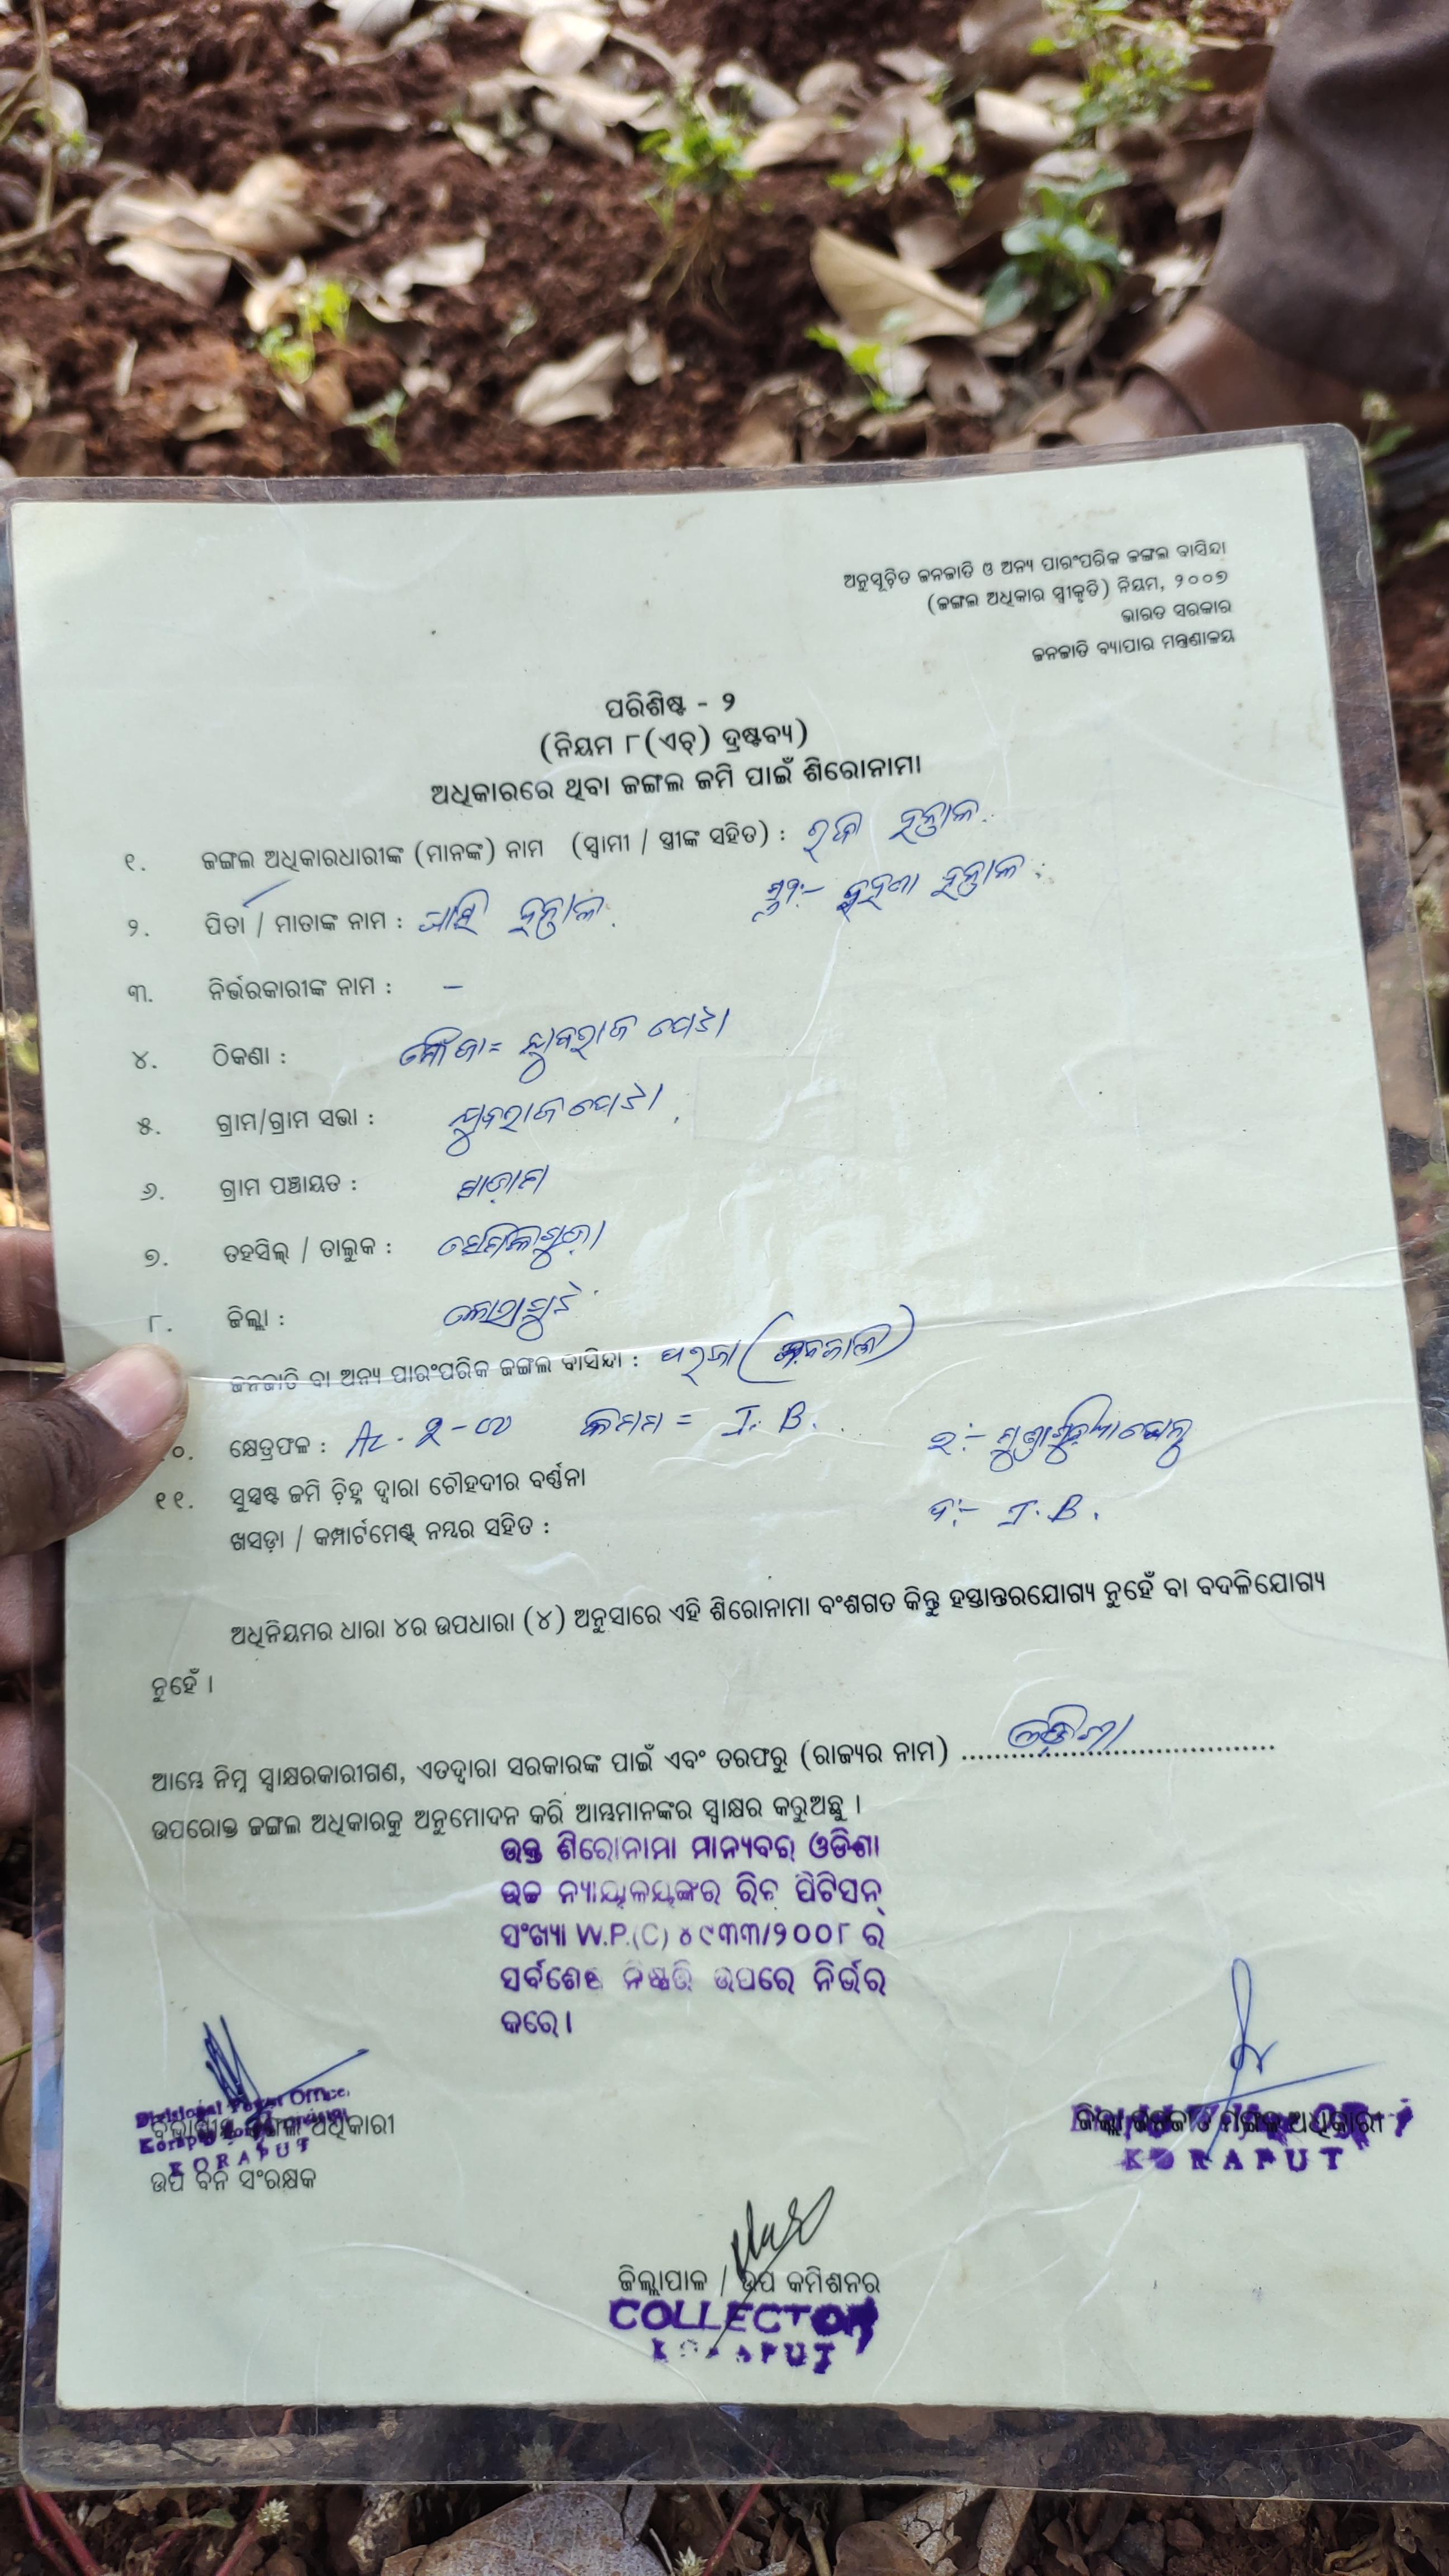 ଅନୁସୂଚିତ ଜନଜାତି ଓ ଅନ୍ୟ ପାରଂପରିକ ଜଙ୍ଗଲ ବାସିନ୍ଦା
(ଜଙ୍ଗଲ ଅଧିକାର ସ୍ୱୀକୃତି) ନିୟମ, ୨୦୦୭
ଭାରତ ସରକାର
ଜନଜାତି ବ୍ୟାପାର ମନ୍ତ୍ରଣାଳୟ
ପରିଶିଷ୍ଟ - ୨
(ନିୟମ ୮(ଏଚ୍) ଦ୍ରଷ୍ଟବ୍ୟ)
ଅଧିକାରରେ ଥିବା ଜଙ୍ଗଲ ଜମି ପାଇଁ ଶିରୋନାମା
୧. ଜଙ୍ଗଲ ଅଧିକାରଧାରୀଙ୍କ (ମାନଙ୍କ) ନାମ (ସ୍ୱାମୀ / ସ୍ତ୍ରୀଙ୍କ ସହିତ) : ହନ୍ତାଳ
୨. ପିତା / ମାତାଙ୍କ ନାମ : ହନ୍ତାଳ ହନ୍ତାଳ
୩. ନିର୍ଭରକାରୀଙ୍କ ନାମ : –
୪. ଠିକଣା : ମୌଜା= ଯୁବରାଜ ପେଟା
୫. ଗ୍ରାମ/ଗ୍ରାମ ସଭା : ଯୁବରାଜପେଟା
୬. ଗ୍ରାମ ପଞ୍ଚାୟତ : ସାଦାମ
୭. ତହସିଲ୍ / ତାଲୁକ : ସେମିଳିଗୁଡ଼ା
୮. ଜିଲ୍ଲା : କୋରାପୁଟ
ଜନଜାତି ବା ଅନ୍ୟ ପାରଂପରିକ ଜଙ୍ଗଲ ବାସିନ୍ଦା : ପରଜା
୦. କ୍ଷେତ୍ରଫଳ : Ac. କିସମ = J. B.
୧୧. ସୁସ୍ପଷ୍ଟ ଜମି ଚିହ୍ନ ଦ୍ୱାରା ଚୌହଦୀର ବର୍ଣ୍ଣନା
ଖସଡ଼ା / କମ୍ପାର୍ଟମେଣ୍ଟ୍ ନମ୍ବର ସହିତ : ଦ:– J. B.
ଅଧିନିୟମର ଧାରା ୪ର ଉପଧାରା (୪) ଅନୁସାରେ ଏହି ଶିରୋନାମା ବଂଶଗତ କିନ୍ତୁ ହସ୍ତାନ୍ତରଯୋଗ୍ୟ ନୁହେଁ ବା ବଦଳିଯୋଗ୍ୟ
ନୁହେଁ ।
ଆମ୍ଭେ ନିମ୍ନ ସ୍ୱାକ୍ଷରକାରୀଗଣ, ଏତଦ୍ୱାରା ସରକାରଙ୍କ ପାଇଁ ଏବଂ ତରଫରୁ (ରାଜ୍ୟର ନାମ) ଓଡ଼ିଶା
ଉପରୋକ୍ତ ଜଙ୍ଗଲ ଅଧିକାରକୁ ଅନୁମୋଦନ କରି ଆମ୍ଭମାନଙ୍କର ସ୍ୱାକ୍ଷର କରୁଅଛୁ ।
ଉକ୍ତ ଶିରୋନାମା ମାନ୍ୟବର ଓଡିଶା
ଉଚ୍ଚ ନ୍ୟାୟାଳୟଙ୍କର ରିଟ ପିଟିସନ୍
ସଂଖ୍ୟା W.P.(C) ୪୯୩୩/୨୦୦୮ ର
ସର୍ବଶେଷ ନିଷ୍ପତ୍ତି ଉପରେ ନିର୍ଭର
କରେ ।
Divisional Forest Officer
ବିଭାଗୀୟ ଜଙ୍ଗଲ ଅଧିକାରୀ
KORAPUT
ଉପ ବନ ସଂରକ୍ଷକ
ଜିଲ୍ଲା ଜନଜାତି ମଙ୍ଗଳ ଅଧିକାରୀ
KORAPUT
ଜିଲ୍ଲାପାଳ / ଉପ କମିଶନର
COLLECTOR
KORAPUT